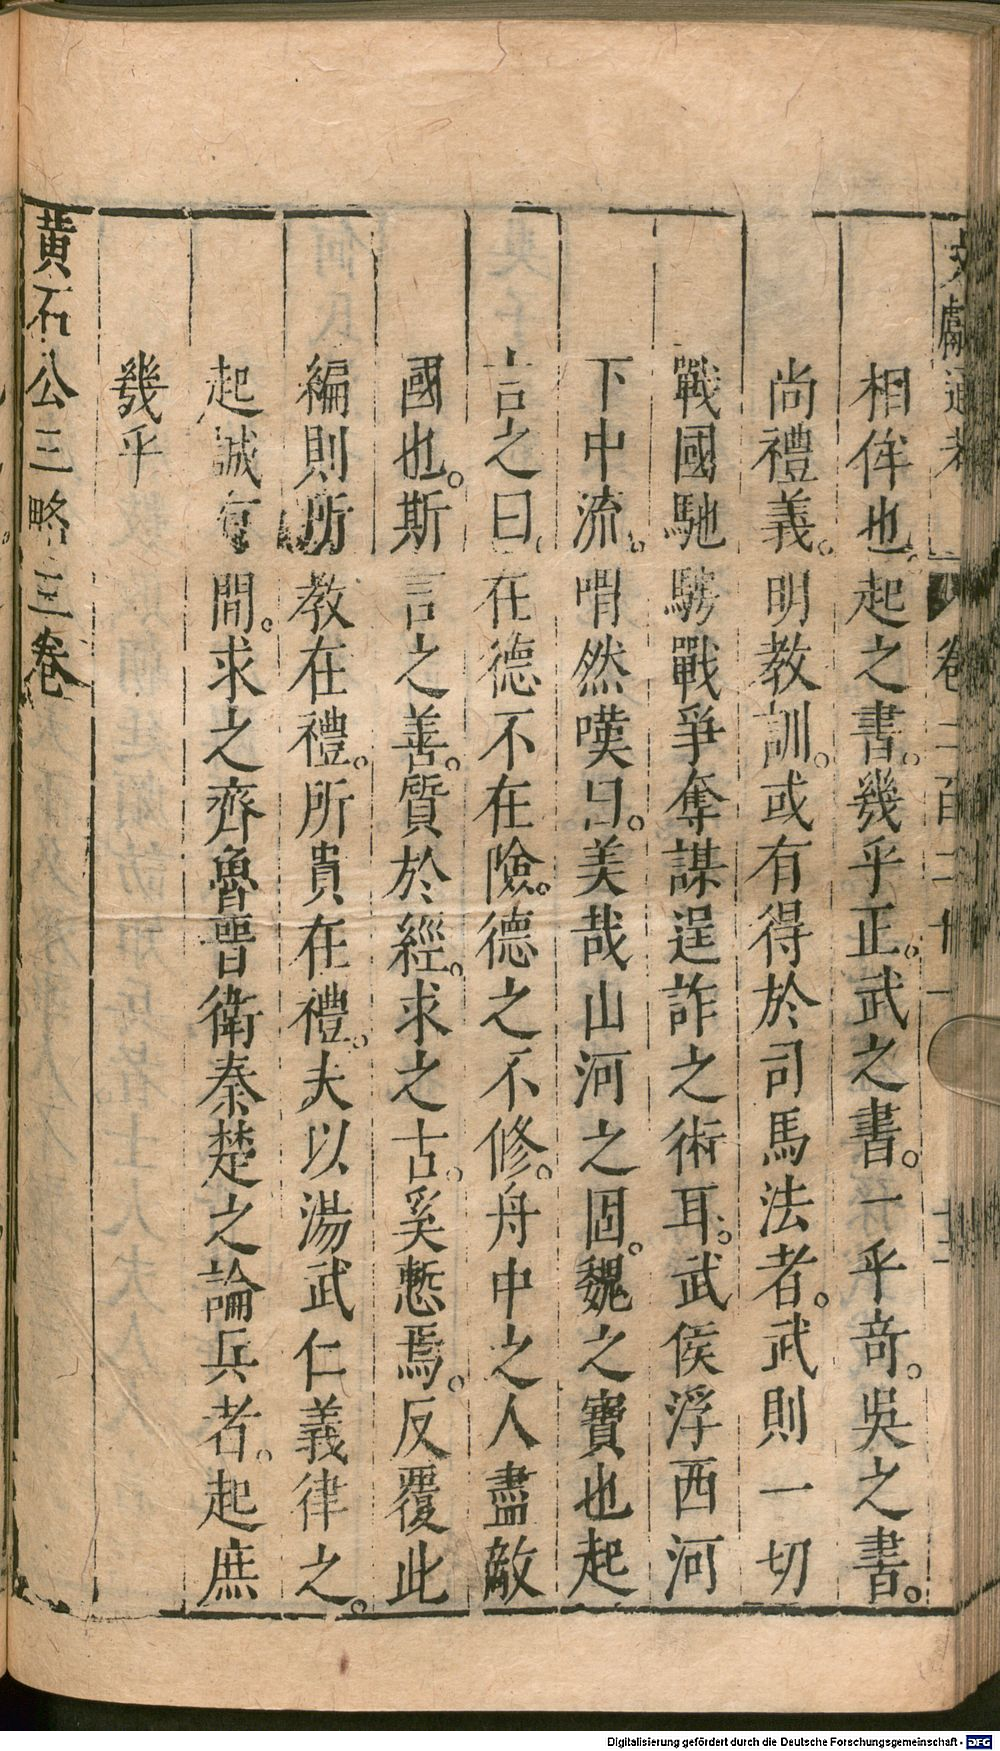 文獻通考 卷二百二十一 十二
相侔也。起之書。幾乎正。武之書。一乎奇。吳之書。
尚禮義。明教訓。或有得於司馬法者。武則一切
戰國馳騁戰爭奪謀逞詐之術耳。武侯浮西河
下中流。喟然嘆曰。美哉山河之固。魏之寶也起
言之曰。在德不在險。德之不修。舟中之人盡敵
國也。斯言之善。質於經。求之古。奚慙焉。反覆此
編則所教在禮。所貴在禮。夫以湯武仁義律之。
起誠有間。求之齊魯晉衛秦楚之論兵者。起庶
幾乎
黃石公三略三卷
Digitalisierung gefördert durch die Deutsche Forschungsgemeinschaft - DFG